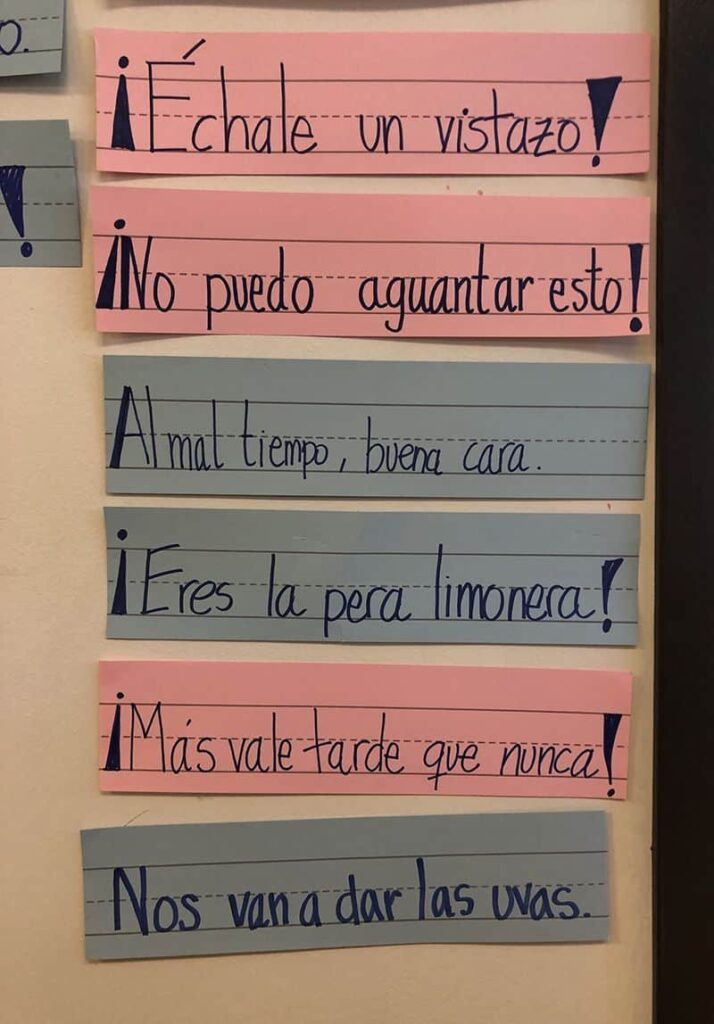 o.
!
¡Échale un vistazo!
¡No puedo aguantar esto!
Al mal tiempo, buena cara.
¡Eres la pera limonera!
¡Más vale tarde que nunca!
Nos van a dar las uvas.